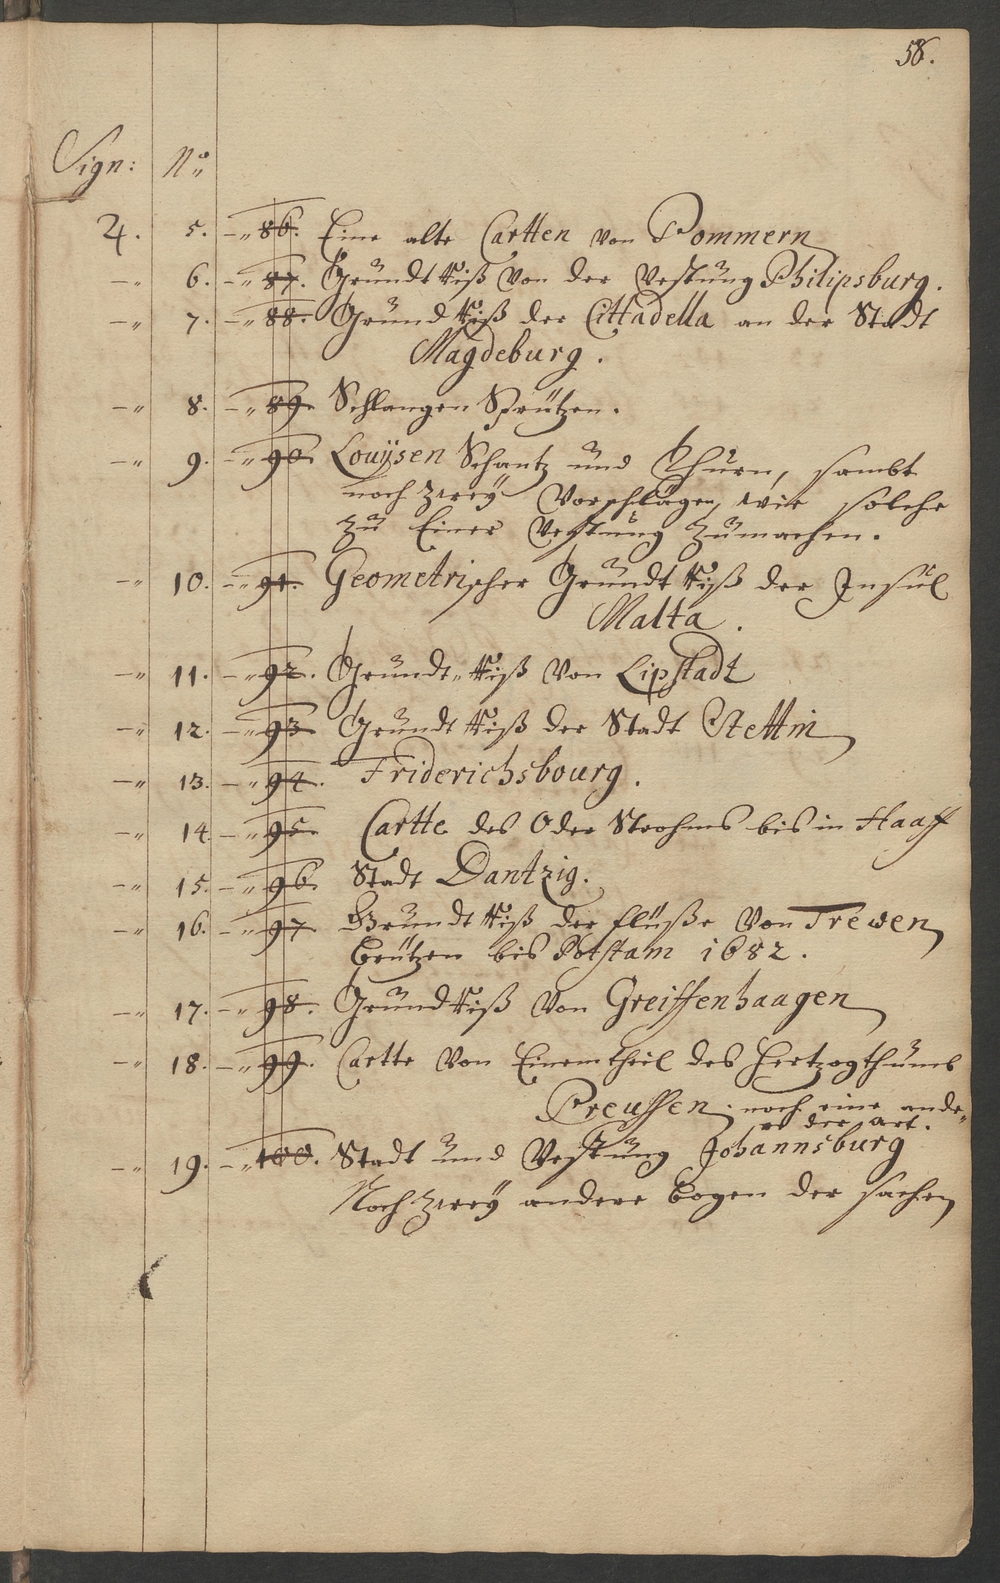 58.
Sign: No:
4. 5. -„ 86. Eine alte Cartten von Pommern
-„ 6. -„ 87. Grundt Riß von der Vestung Philipsburg.
-„ 7. -„ 88. Grund Riß der Cittadella an der Stadt
Magdeburg.
-„ 8. -„ 89. Schlangen Sprützen.
-„ 9. -„ 90. Louijsen Schantz und Thurn, sambt
noch zweÿ Vorschlägen, wie solche
zu Einer Vestung zumachen.
-„ 10. -„ 91. Geometrischer Grundt Riß der Insul
Malta.
-„ 11. -„ 92. Grundt-Riß von Lipstadt
-„ 12. -„ 93. Grundt Riß der Stadt Stettin
-„ 13. -„ 94. Friderichsbourg.
-„ 14. -„ 95. Cartte des Oder Strohms bis in Haaff
-„ 15. -„ 96. Stadt Dantzig.
-„ 16. -„ 97. Grundt Riß der flüße von Trewen
brützen bis Potstam 1682.
-„ 17. -„ 98. Grundt Riß von Greiffenhaagen
-„ 18. -„ 99. Cartte von Einem theil des Hertzogthumbs
Preussen noch eine ande-
re der art.
-„ 19. -„ 100. Stadt und Vestung Johannsburg
Noch zweÿ andere bogen der sachen